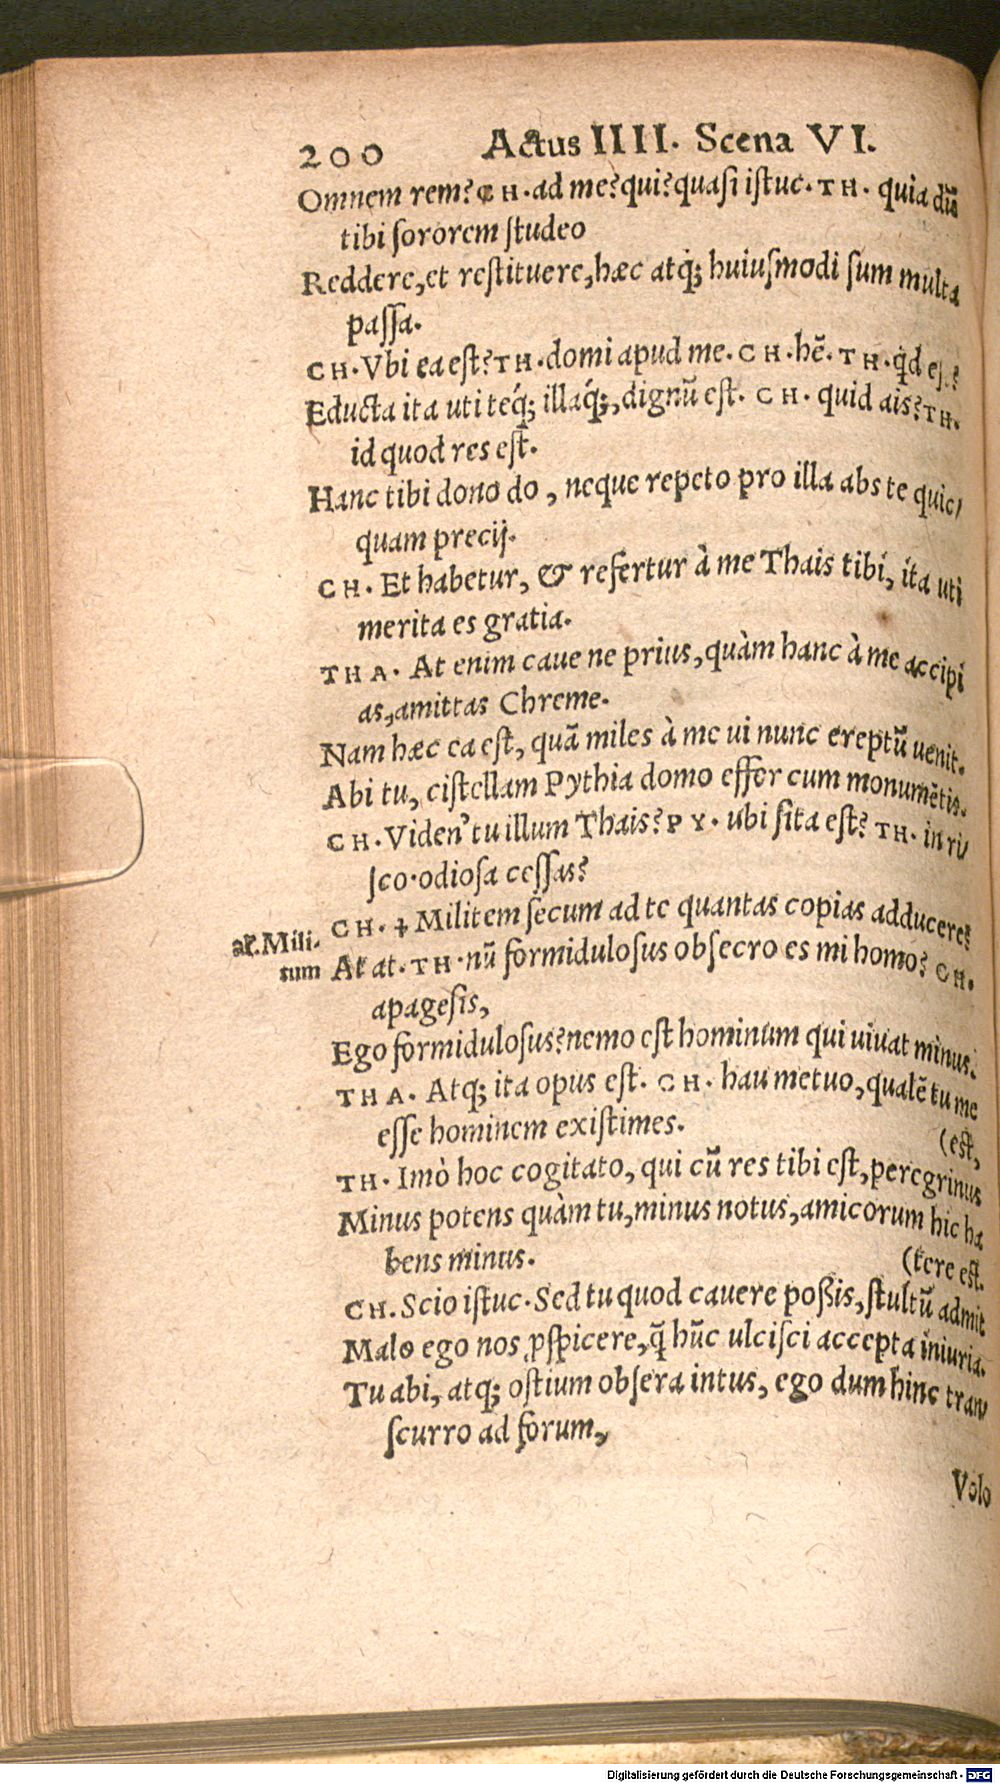 200 Actus IIII. Scena VI.
Omnem rem? CH. ad me? qui? quasi istuc. TH. quia dū
tibi sororem studeo
Reddere, et restituere, hæc atq; huiusmodi sum multa
passa.
CH. Vbi ea est? TH. domi apud me. CH. hē. TH. qd est?
Educta ita uti teq́; illaq́;, dignū est. CH. quid ais? TH.
id quod res est.
Hanc tibi dono do, neque repeto pro illa abs te quic/
quam precij.
CH. Et habetur, & refertur à me Thais tibi, ita uti
merita es gratia.
THA. At enim caue ne prius, quàm hanc à me accipi
as, amittas Chreme.
Nam hæc ea est, quā miles à me ui nunc ereptū uenit.
Abi tu, cistellam Pythia domo effer cum monumētis.
CH. Viden' tu illum Thais? PY. ubi sita est? TH. in ri/
sco. odiosa cessas?
CH. + Militem secum ad te quantas copias adducere?
al. Mili.
tum
At at. TH. nū formidulosus obsecro es mi homo? CH.
apagesis,
Ego formidulosus? nemo est hominum qui uiuat minus.
THA. Atq; ita opus est. CH. hau metuo, qualē tu me
esse hominem existimes. (est,
TH. Imò hoc cogitato, qui cū res tibi est, peregrinus
Minus potens quàm tu, minus notus, amicorum hic ha
bens minus. (tere est.
CH. Scio istuc. Sed tu quod cauere poßis, stultū admit
Malo ego nos ꝓspicere, q̄ hūc ulcisci accepta iniuria.
Tu abi, atq; ostium obsera intus, ego dum hinc tran/
scurro ad forum,
Volo
Digitalisierung gefördert durch die Deutsche Forschungsgemeinschaft - DFG